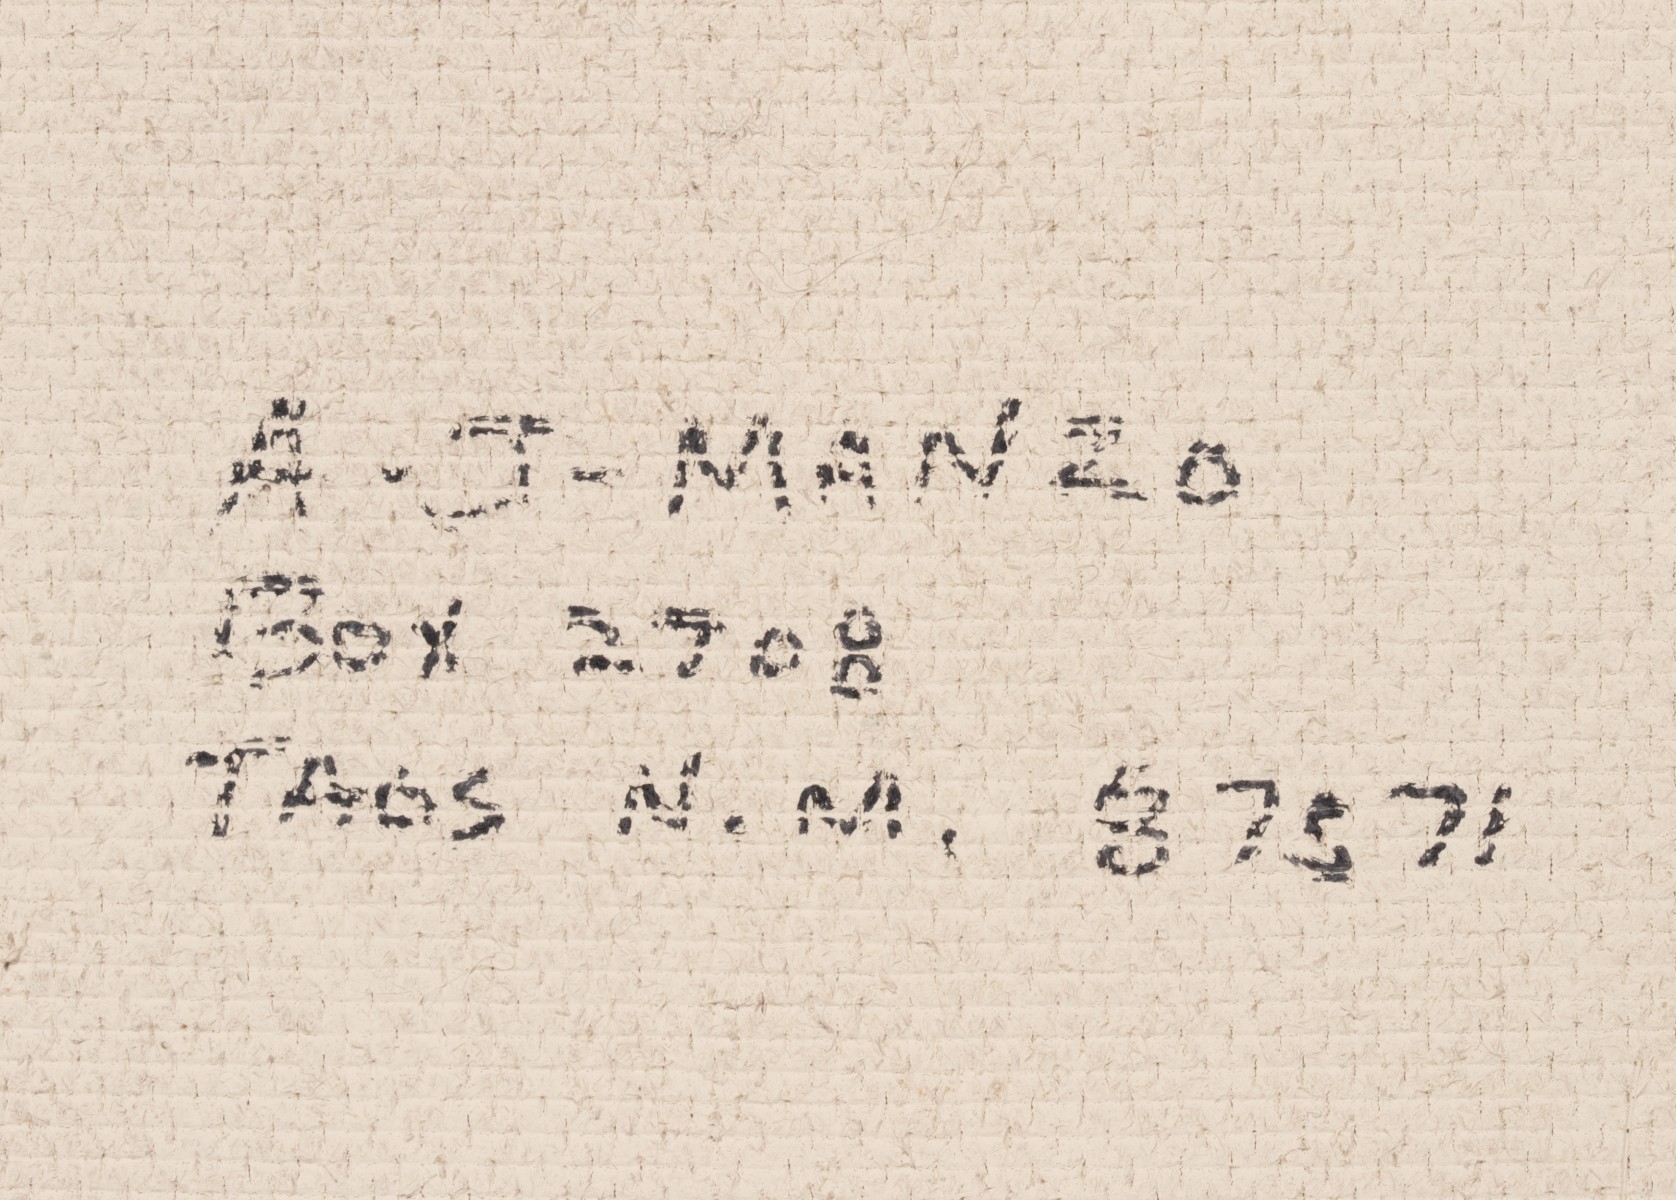 A. J-MANZO
Box 2708
TAOS N.M. 87571